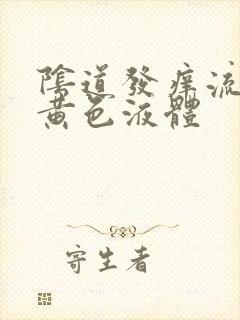 陰道發痒流
黄色液體
寄生者